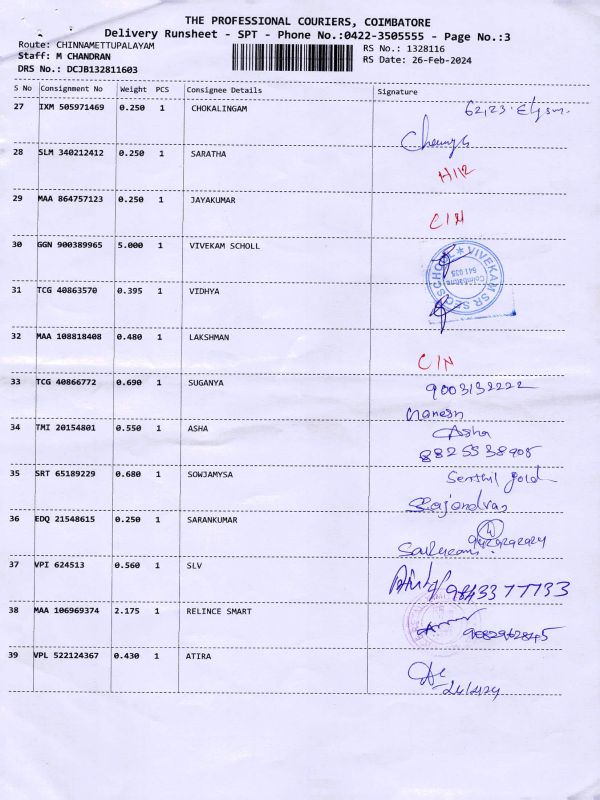 THE PROFESSIONAL COURIERS, COIMBATORE
Delivery Runsheet - SPT - Phone No.:0422-3505555 - Page No.:3
Route: CHINNAMETTUPALAYAM RS No.: 1328116
Staff: M CHANDRAN RS Date: 26-Feb-2024
DRS No.: DCJB132811603
S No Consignment No Weight PCS Consignee Details Signature
27 IXM 505971469 0.250 1 CHOKALINGAM
28 SLM 340212412 0.250 1 SARATHA
29 MAA 864757123 0.250 1 JAYAKUMAR
C/N
30 GGN 900389965 5.000 1 VIVEKAM SCHOLL
VIVEKAM SR SEC SCHOOL
Coimbatore
641 035
31 TCG 40863570 0.395 1 VIDHYA
32 MAA 108818408 0.480 1 LAKSHMAN
C/N
33 TCG 40866772 0.690 1 SUGANYA
34 TMI 20154801 0.550 1 ASHA Asha
8825538905
35 SRT 65189229 0.680 1 SOWJAMYSA Senthil gold
36 EDQ 21548615 0.250 1 SARANKUMAR
37 VPI 624513 0.560 1 SLV
9843377733
38 MAA 106969374 2.175 1 RELINCE SMART
39 VPL 522124367 0.430 1 ATIRA